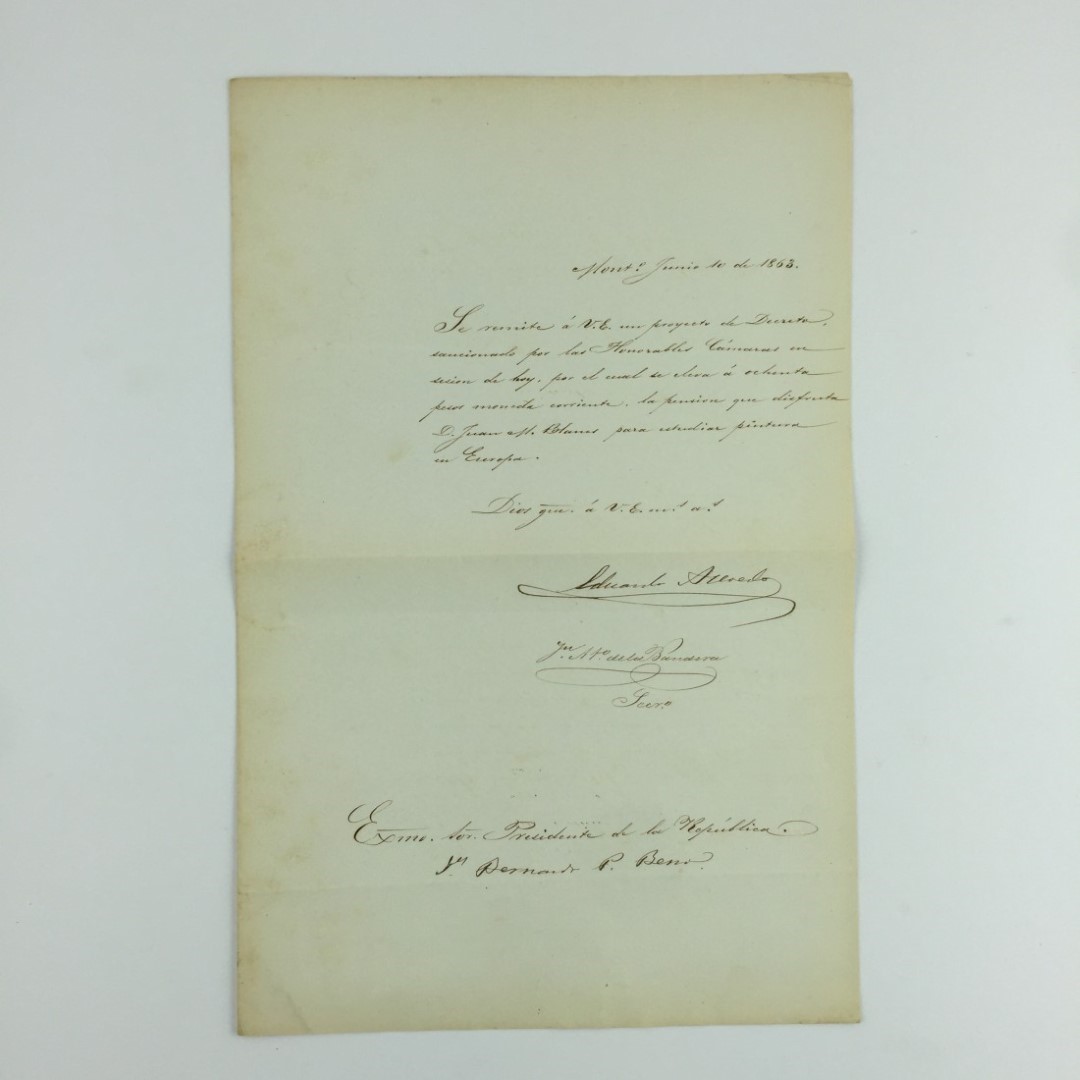 Mont.º Junio 10 de 1863.
Se remite á V.E. un proyecto de Decreto,
sancionado por las Honorables Cámaras en
sesion de hoy, por el cual se eleva á ochenta
pesos moneda corriente, la pension que disfruta
D. Juan M. Blanes para estudiar pintura
en Europa.
Dios gue. á V.E. m.s a.s
Eduardo Acevedo
Jn. At.º de la Bandera
Secr.º
Exmo. Sor. Presidente de la República.
Dn Bernardo P. Berro.